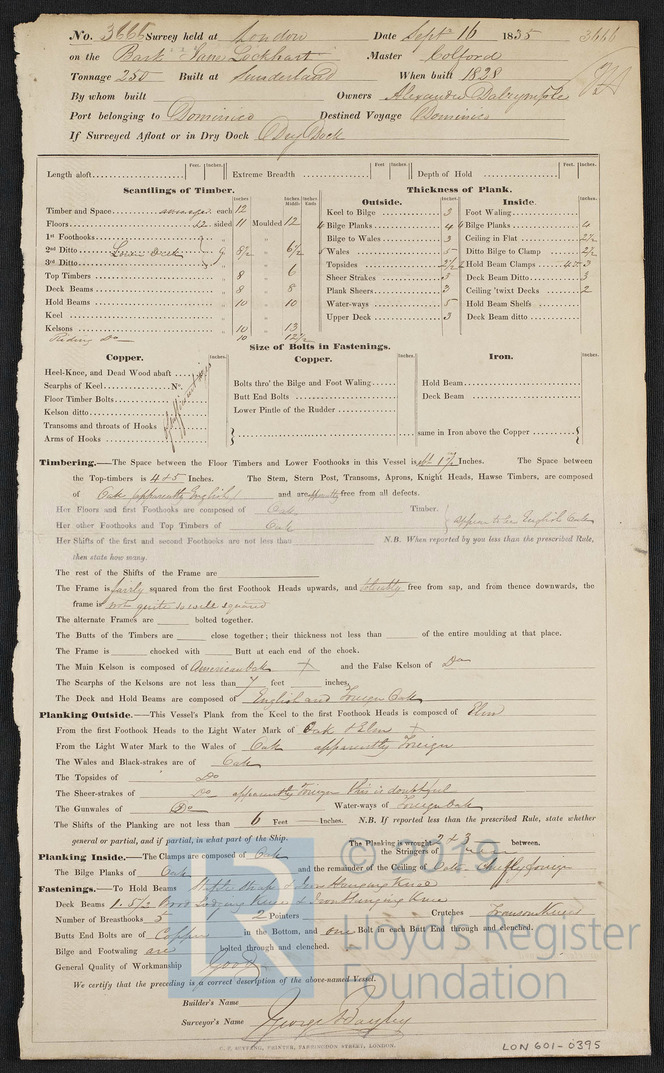 No. 3666 Survey held at London Date Sept 16 1835 3666
on the Bark "Jane Lockhart" Master Colford
Tonnage 250 Built at Sunderland When built 1828
By whom built Owners Alexander Dalrymple
Port belonging to Dominica Destined Voyage Dominica
If Surveyed Afloat or in Dry Dock Dry Dock
Length aloft Feet. Inches. Extreme Breadth Feet Inches. Depth of Hold Feet. Inches.
Scantlings of Timber.
Inches Inches Middle Inches Ends
Timber and Space each 12
Floors 12 sided 11 Moulded 12
1st Foothooks
2nd Ditto Lower Deck 9 8½ 6½
3rd Ditto
Top Timbers 8 6
Deck Beams 8 8
Hold Beams 10 10
Keel
Kelsons 10 13
Riding Do 10 12½
Thickness of Plank.
Outside.
Inches.
Keel to Bilge 3
4 Bilge Planks 4
Bilge to Wales 3
5 Wales 5
Topsides 2½
Sheer Strakes 3
Plank Sheers 3
Water-ways 5
Upper Deck 3
Inside.
Inches.
Foot Waling
Bilge Planks 4
Ceiling in Flat 2½
Ditto Bilge to Clamp 2½
Hold Beam Clamps 3
Deck Beam Ditto 3
Ceiling 'twixt Decks 2
Hold Beam Shelfs
Deck Beam ditto
Size of Bolts in Fastenings.
Copper.
Inches.
Heel-Knee, and Dead Wood abaft
Scarphs of Keel No.
Floor Timber Bolts
Kelson ditto
Transoms and throats of Hooks
Arms of Hooks
of sufficient size
Copper.
Inches.
Bolts thro' the Bilge and Foot Waling
Butt End Bolts
Lower Pintle of the Rudder
Iron.
Inches.
Hold Beam
Deck Beam
same in Iron above the Copper
Timbering.—The Space between the Floor Timbers and Lower Foothooks in this Vessel is abt 1½ Inches. The Space between
the Top-timbers is 4 & 5 Inches. The Stem, Stern Post, Transoms, Aprons, Knight Heads, Hawse Timbers, are composed
of Oak apparently English and are apparently free from all defects.
Her Floors and first Foothooks are composed of Oak Timber.
Her other Foothooks and Top Timbers of Oak appear to be English Oak
Her Shifts of the first and second Foothooks are not less than N.B. When reported by you less than the prescribed Rule,
then state how many.
The rest of the Shifts of the Frame are
The Frame is fairly squared from the first Foothook Heads upwards, and tolerably free from sap, and from thence downwards, the
frame is not quite so well squared
The alternate Frames are bolted together.
The Butts of the Timbers are close together; their thickness not less than of the entire moulding at that place.
The Frame is chocked with Butt at each end of the chock.
The Main Kelson is composed of American Oak + and the False Kelson of Do
The Scarphs of the Kelsons are not less than 7 feet inches,
The Deck and Hold Beams are composed of English and Foreign Oak
Planking Outside.—This Vessel's Plank from the Keel to the first Foothook Heads is composed of Elm
From the first Foothook Heads to the Light Water Mark of Oak & Elm +
From the Light Water Mark to the Wales of Oak apparently Foreign
The Wales and Black-strakes are of Oak
The Topsides of Do
The Sheer-strakes of Do apparently Foreign this is doubtful
The Gunwales of Do Water-ways of Foreign Oak
The Shifts of the Planking are not less than 6 Feet Inches. N.B. If reported less than the prescribed Rule, state whether
general or partial, and if partial, in what part of the Ship. The Planking is wrought 2 & 3 between.
Planking Inside.—The Clamps are composed of Oak the Stringers of
The Bilge Planks of Oak and the remainder of the Ceiling of Oak chiefly foreign
Fastenings.—To Hold Beams Staple Strap & Iron Hanging Knees
Deck Beams Wood Lodging Knees & Iron Hanging Knees
Number of Breasthooks 5 2 Pointers Crutches Transom Knees
Butts End Bolts are of Copper in the Bottom, and one Bolt in each Butt End through and clenched.
Bilge and Footwaling are bolted through and clenched.
General Quality of Workmanship Good
We certify that the preceding is a correct description of the above-named Vessel.
Builder's Name
Surveyor's Name George Bayley
PRINTER, LONDON.
LON 601-0395
© 2019
Lloyd's Register
Foundation